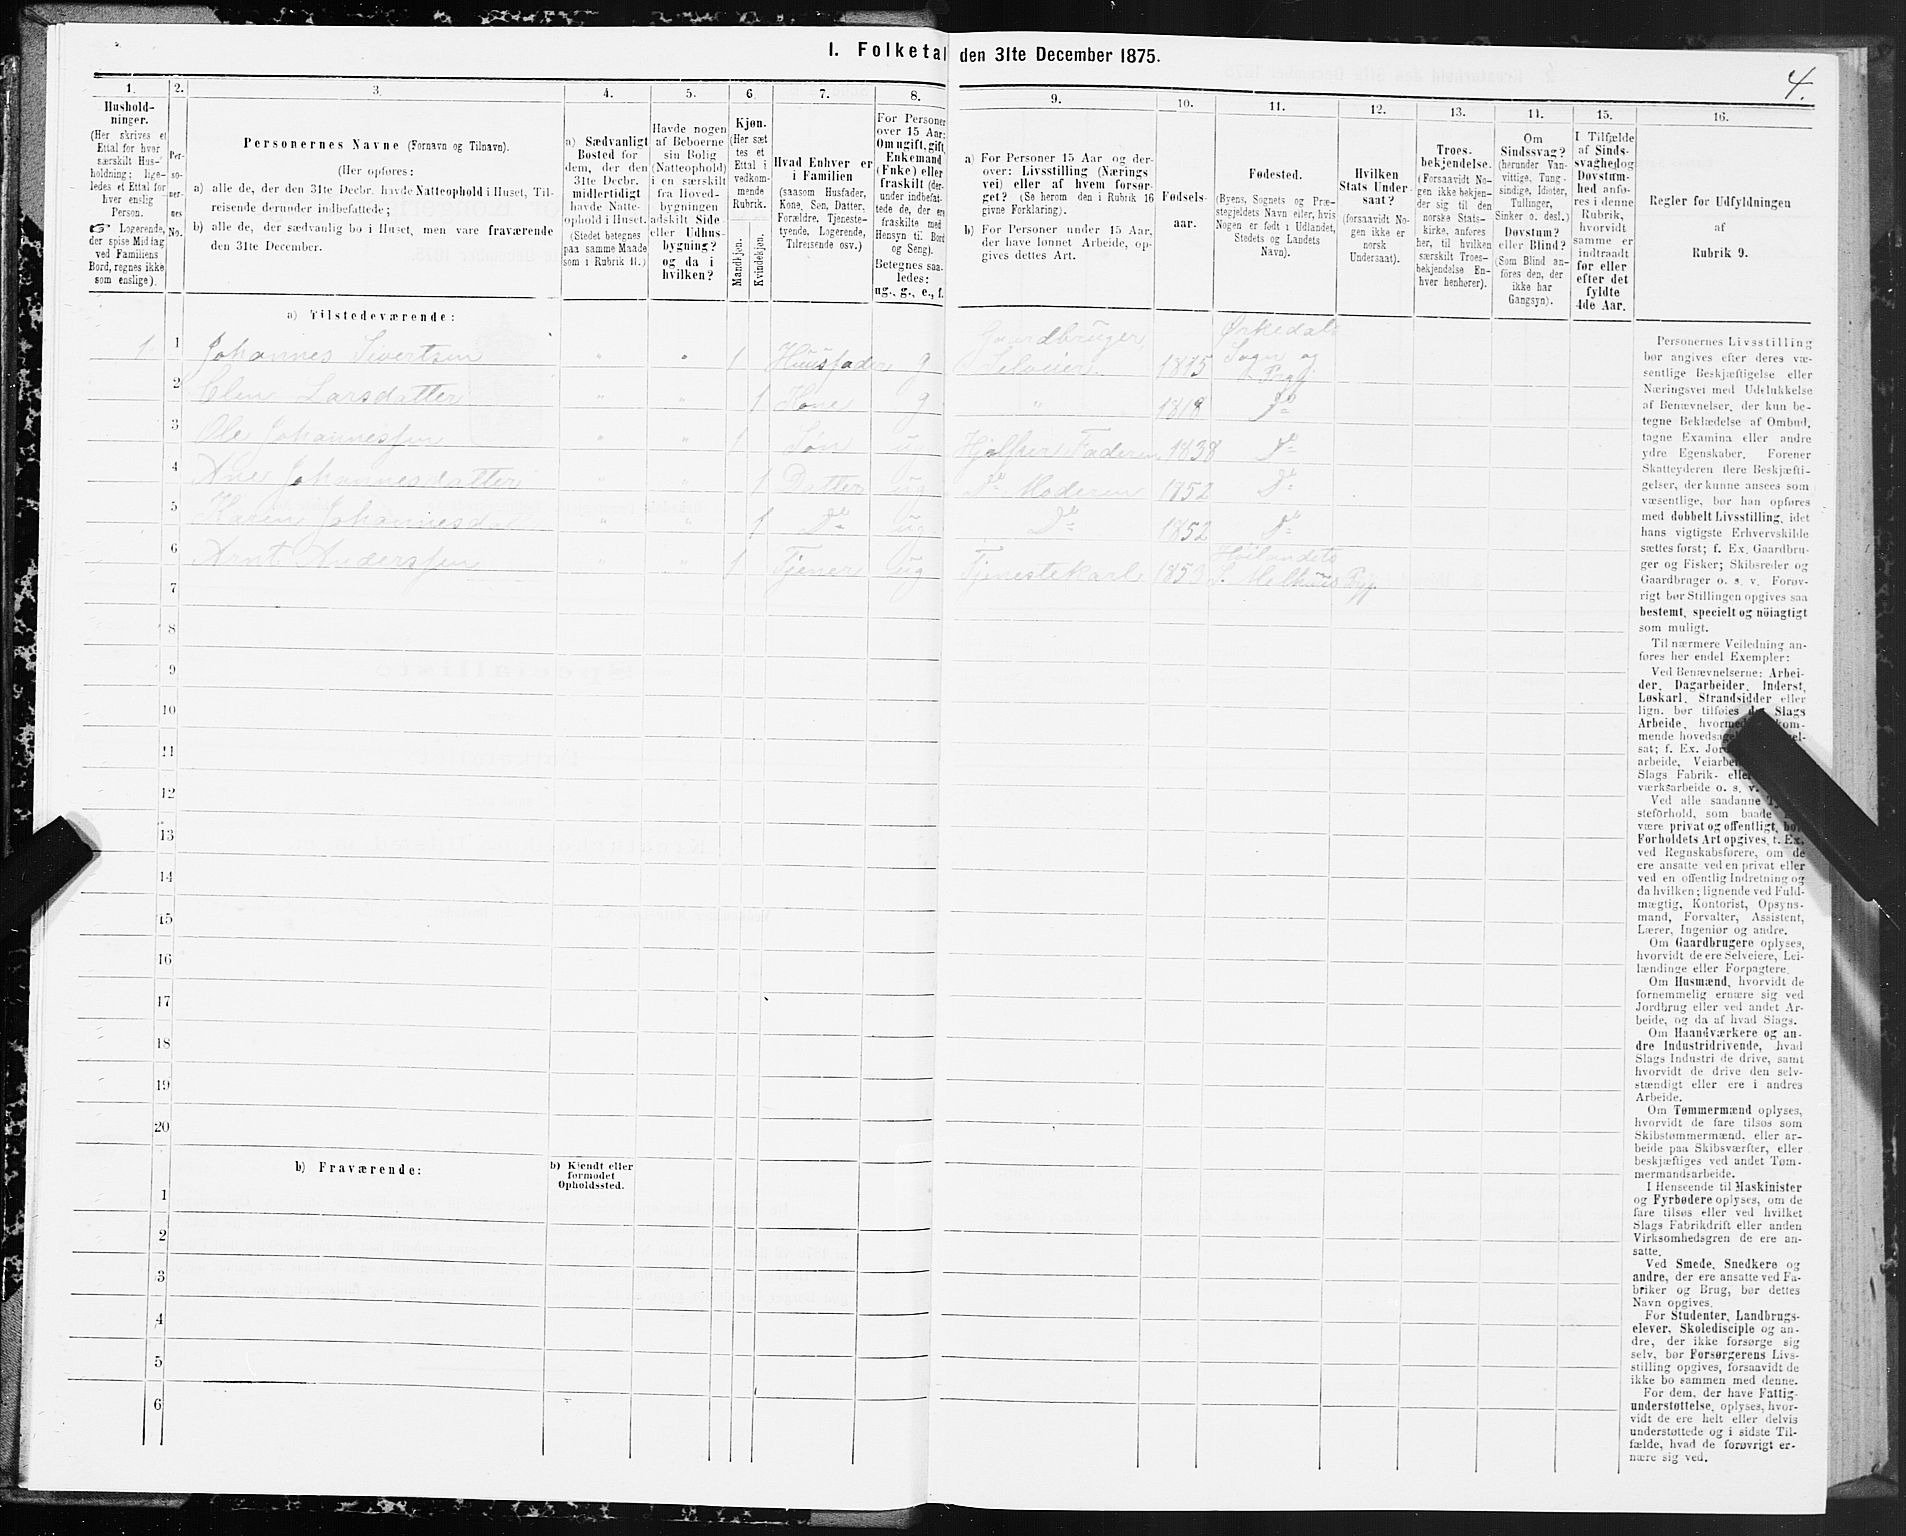 I. Folketal den 31te December 1875.
4.
1.
Hushold-
ninger.
(Her skrives et
Ettal for hver
særskilt Hus-
holdning; lige-
ledes et Ettal for
hver enslig
Person.
☞ Logerende,
der spise Middag
ved Familiens
Bord, regnes ikke
som enslige).
2.
Per-
so-
ner-
nes
No.
3.
Personernes Navne (Fornavn og Tilnavn).
(Her opføres:
a) alle de, der den 31te Decbr. havde Natteophold i Huset, Til-
reisende derunder indbefattede;
b) alle de, der sædvanlig bo i Huset, men vare fraværende
den 31te December.
4.
a) Sædvanligt
Bosted for
dem, der den
31te Decbr.
midlertidigt
havde Natte-
ophold i Huset.
(Stedet betegnes
paa samme Maade
som i Rubrik 11.)
5.
Havde nogen
af Beboerne
sin Bolig
(Natteophold)
i en særskilt
fra Hoved-
bygningen
adskilt Side-
eller Udhus-
bygning?
og da i
hvilken?
6.
Kjøn.
(Her sæt-
tes et
Ettal i
vedkom-
mende
Rubrik.
Mandkjøn.
Kvindekjøn.
7.
Hvad Enhver er
i Familien
(saasom Husfader,
Kone, Søn, Datter,
Forældre, Tjeneste-
tyende, Logerende,
Tilreisende osv.)
8.
For Personer
over 15 Aar:
Om ugift, gift,
Enkemand
(Enke) eller
fraskilt (der-
under indbefat-
tede de, der ere
fraskilte med
Hensyn til Bord
og Seng).
Betegnes saa-
ledes:
ug., g., e., f.
9.
a) For Personer 15 Aar og der-
over: Livsstilling (Nærings
vei) eller af hvem forsør-
get? (Se herom den i Rubrik 16
givne Forklaring).
b) For Personer under 15 Aar,
der have lønnet Arbeide, op-
gives dettes Art.
10.
Fødsels-
aar.
11.
Fødested.
(Byens, Sognets og Præ-
stegjeldets Navn eller, hvis
Nogen er født i Udlandet,
Stedets og Landets
Navn).
12.
Hvilken
Stats Under-
saat?
(forsaavidt No-
gen ikke er
norsk
Undersaat).
13.
Troes-
bekjendelse.
(Forsaavidt No-
gen ikke bekjen-
der sig til den
norske Stats-
kirke, anføres
her, til hvilken
særskilt Troes-
bekjendelse En-
hver henhører).
14.
Om
Sindssvag?
(herunder Van-
vittige, Tung-
sindige, Idioter,
Tullinger,
Sinker o. desl.)
Døvstum?
eller Blind?
(Som Blind an-
føres den, der
ikke har
Gangsyn).
15.
I Tilfælde
af Sinds-
svaghed og
Døvstum-
hed anfø-
res i denne
Rubrik,
hvorvidt
samme er
indtraadt
før eller
efter det
fyldte
4de Aar.
16.
Regler for Udfyldningen
af
Rubrik 9.
a) Tilstedeværende:
1 1 Johannes Sivertsen " " 1 Huusfader g Gaardbruger Selveier. 1815 Ørkedals Sogn og Prgj
2 Olen Larsdatter " " 1 Kone g " 1818 Do
3 Ole Johannessen " " 1 Søn ug Hjelper Faderen 1838 Do
4 Ane Johannesdatter " " 1 Datter ug do Moderen 1852 Do
5 Karen Johannesdat " " 1 Do ug Do 1852 Do
6 Arnt Anderssen " " 1 Tjener ug Tjenestekarl Høilandets S. Melhuus Prgj.
7
8
9
10
11
12
13
14
15
16
17
18
19
20
b) Fraværende:
b) Kjendt eller
formodet
Opholdssted.
1
2
3
4
5
6
Personernes Livsstilling
bør angives efter deres væ-
sentlige Beskjæftigelse eller
Næringsvei med Udelukkelse
af Benævnelser, der kun be-
tegne Beklædelse af Ombud,
tagne Examina eller andre
ydre Egenskaber. Forener
Skatteyderen flere Beskjæfti-
gelser, der kunne ansees som
væsentlige, bør han opføres
med dobbelt Livsstilling, idet
hans vigtigste Erhvervskilde
sættes først; f. Ex. Gaardbru-
ger og Fisker; Skibsreder og
Gaardbruger o. s. v. Forøv-
rigt bør Stillingen opgives saa
bestemt, specielt og nöiagtigt
som muligt.
Til nærmere Veiledning an-
føres her endel Exempler:
Ved Benævnelserne: Arbei-
der, Dagarbeider, Inderst,
Løskarl, Strandsidder eller
lign. bør tilføies det Slags
Arbeide, hvormed
mende
sat; f. Ex.
arbeide,
Slags Fabrik-
værksarbeide o. s. v.
Ved alle saadanne
steforhold, som baade
være privat og offentligt, bør
Forholdets Art opgives, f. Ex.
ved Regnskabsførere, om de
ere ansatte ved en privat eller
ved en offentlig Indretning og
da hvilken; lignende ved Fuld-
mægtig, Kontorist, Opsyns-
mand, Forvalter, Assistent,
Lærer, Ingeniør og andre.
Om Gaardbrugere oplyses,
hvorvidt de ere Selveiere, Lei-
lændinge eller Forpagtere.
Om Husmænd, hvorvidt de
fornemmelig ernære sig ved
Jordbrug eller ved andet Ar-
beide, og da af hvad Slags.
Om Haandværkere og an-
dre Industridrivende, hvad
Slags Industri de drive, samt
hvorvidt de drive den selv-
stændigt eller ere i andres
Arbeide.
Om Tømmermænd oplyses,
hvorvidt de fare tilsøs som
Skibstømmermænd, eller ar-
beide paa Skibsværfter, eller
beskjæftiges ved andet Tøm-
mermandsarbeide.
I Henseende til Maskinister
og Fyrbødere oplyses, om de
fare tilsøs eller ved hvilket
Slags Fabrikdrift eller anden
Virksomhedsgren de ere an-
satte.
Ved Smede, Snedkere og
andre, der ere ansatte ved Fa-
briker og Brug, bør dettes
Navn opgives.
For Studenter, Landbrugs-
elever, Skoledisciple og an-
dre, der ikke forsørge sig
selv, bør Forsørgerens Livs-
stilling opgives, forsaavidt de
ikke bo sammen med denne.
For dem, der have Fattig-
understøttelse, oplyses, hvor-
vidt de ere helt eller delvis
understøttede og i sidste Til-
fælde, hvad de forøvrigt er-
nære sig ved.